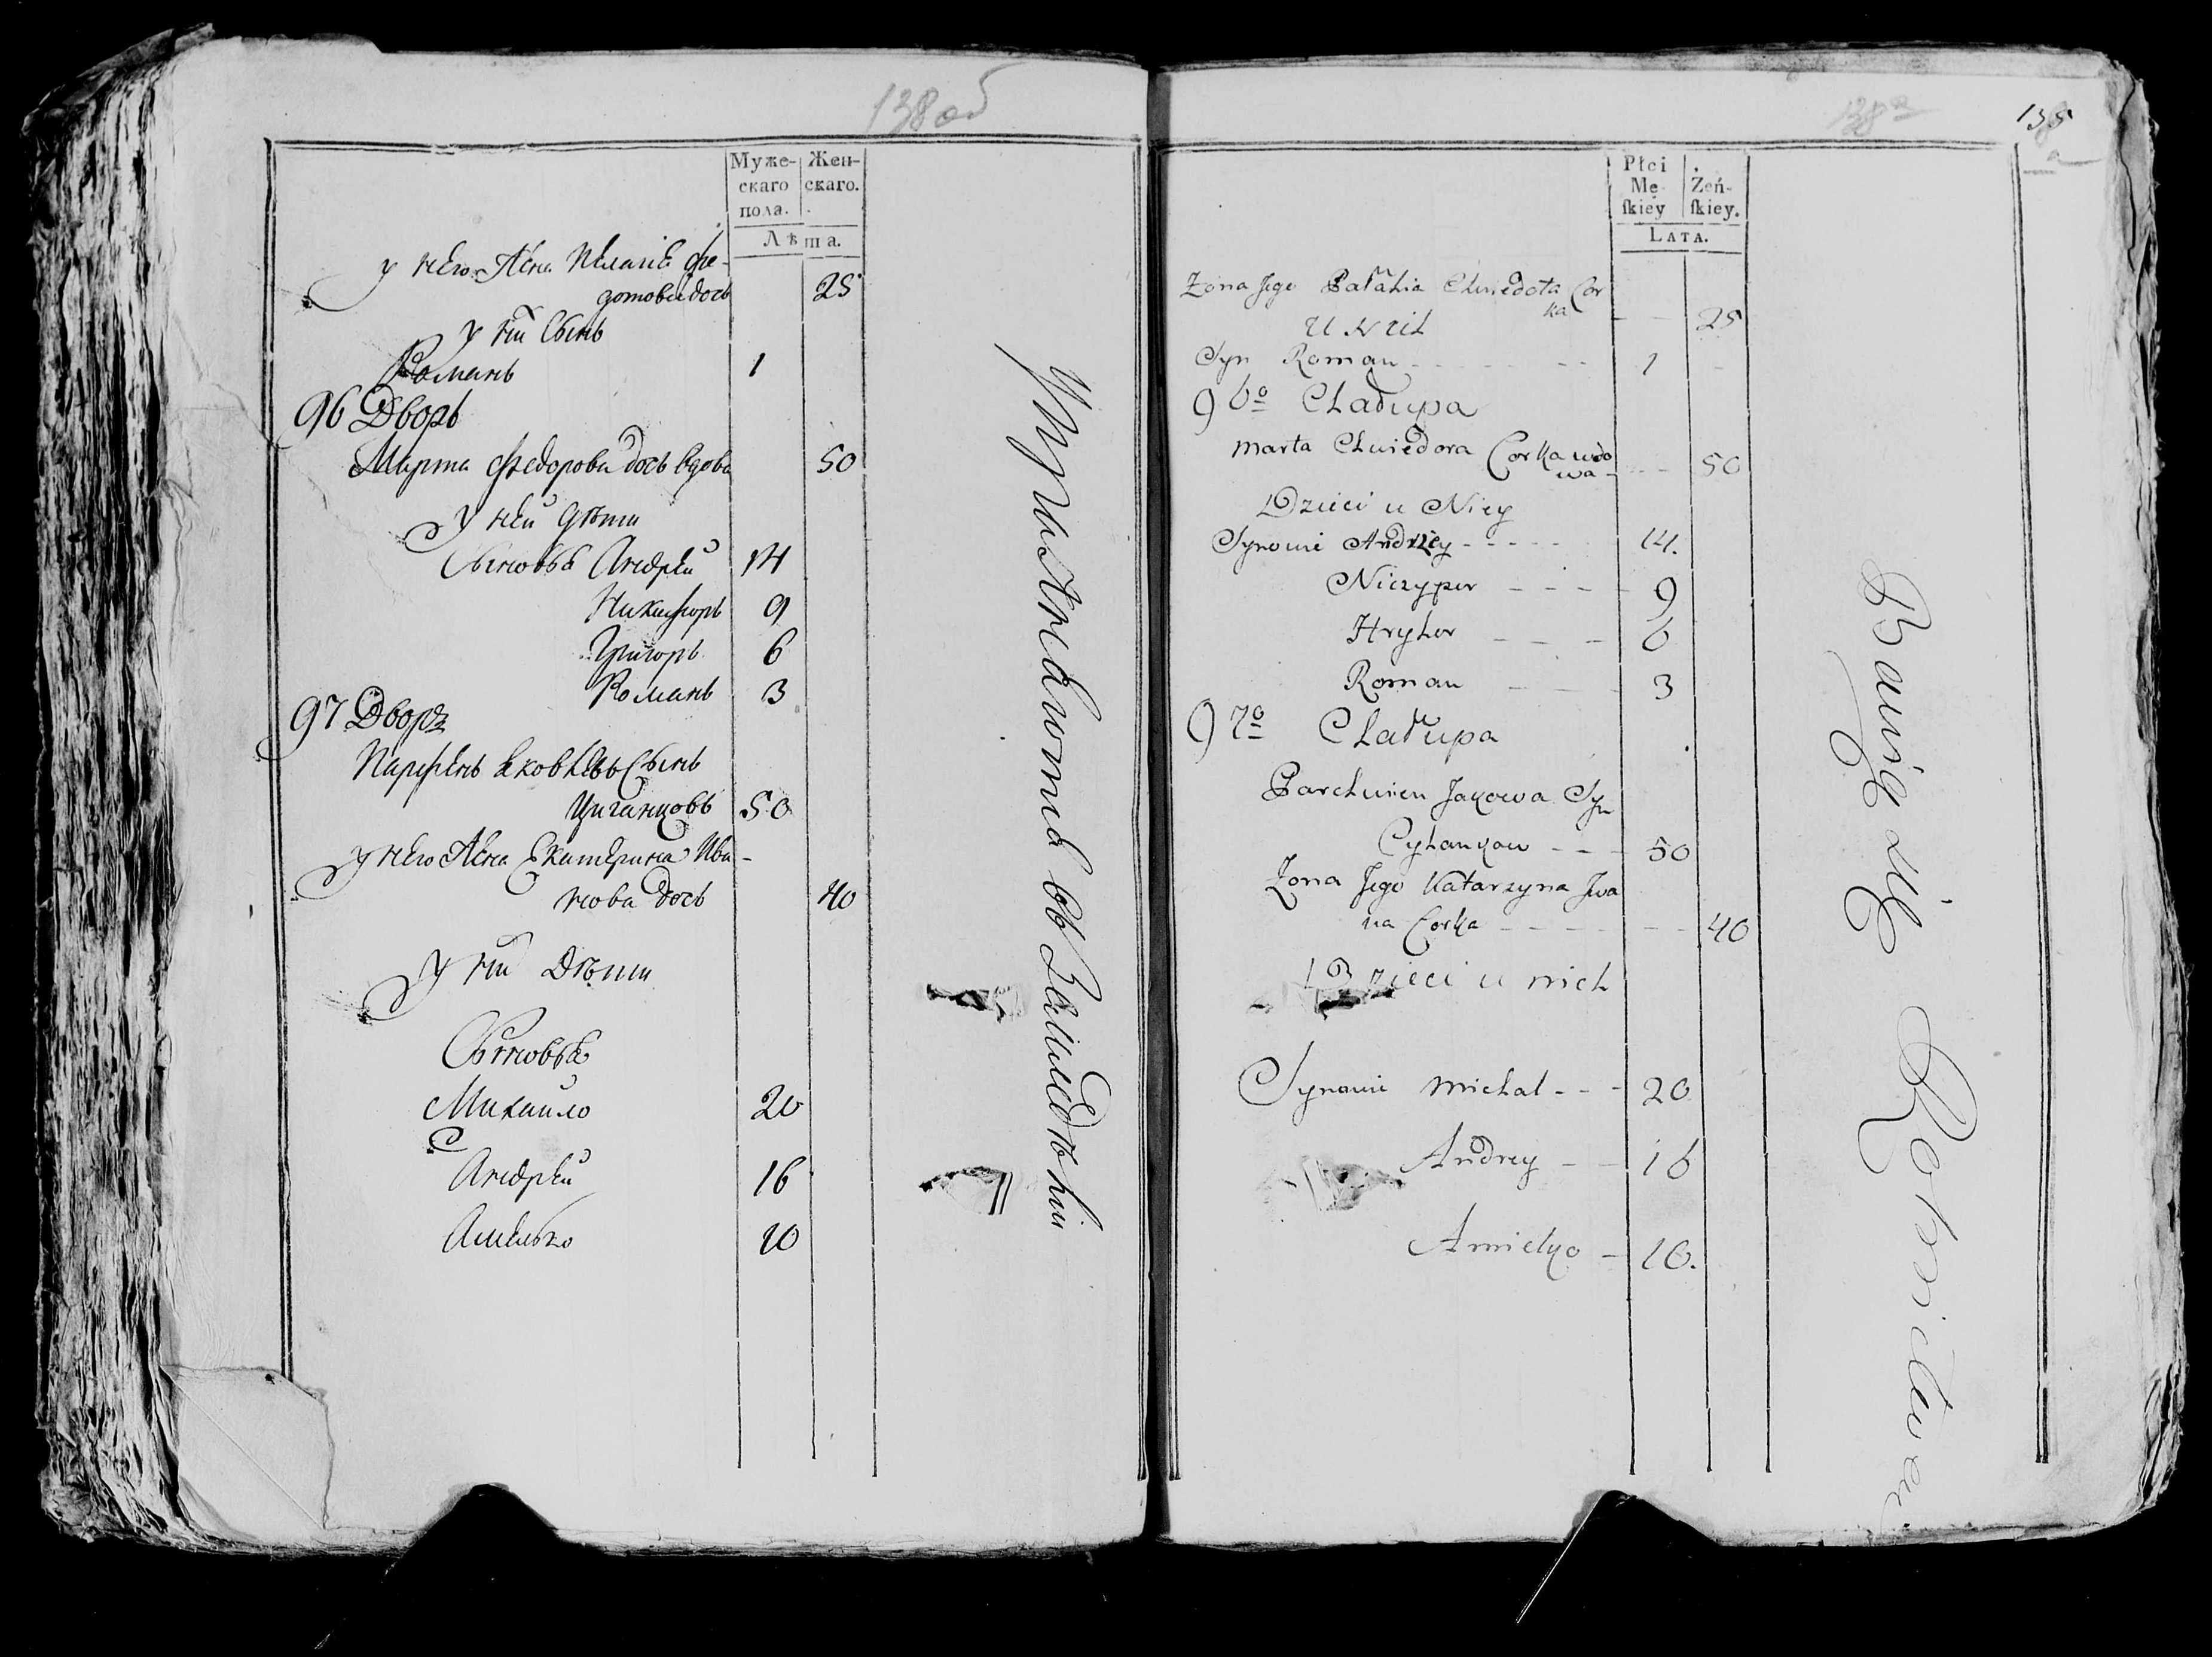 138 об
Муже- Жен-
скаго скаго.
пола.
Лѣта.
у него Жена Пелагѣя Фе-
дотова дочь 25
у ней Сынъ
Романъ 1
96 Дворъ
Марта Федорова дочь вдова 50
у ней дѣти
Сыновья Андрей 14
Никифоръ 9
Григоръ 6
Романъ 3
97 Дворъ
Парфенъ Яковлевъ Сынъ
Циганковъ 50
у него Жена Екатерина Ива-
нова дочь 40
у ней Дѣти
Сыновья
Михайло 20
Андрей 16
Амелько 10
Упражняются въ Земледѣліи
138
a
Płci
Mę- Żeń-
skiey skiey.
LATA.
Zona Jego Pałahia Chwiedota Cor
ka 25
U Nich
Syn Roman 1
96o Chałupa
Marta Chwiedora Corka wdo
wa 50
Dzieci u Niey
Synowie Andrzey 14.
Niczyper 9
Hryhor 6
Roman 3
97o Chałupa
Parchwien Jakowa Syn
Cyhankow 50
Zona Jego Katarzyna Iwa
na Corka 40
Dzieci u nich
Synowie Michał 20
Andrey 16
Amielko 10.
Bawią się Rolnictwem